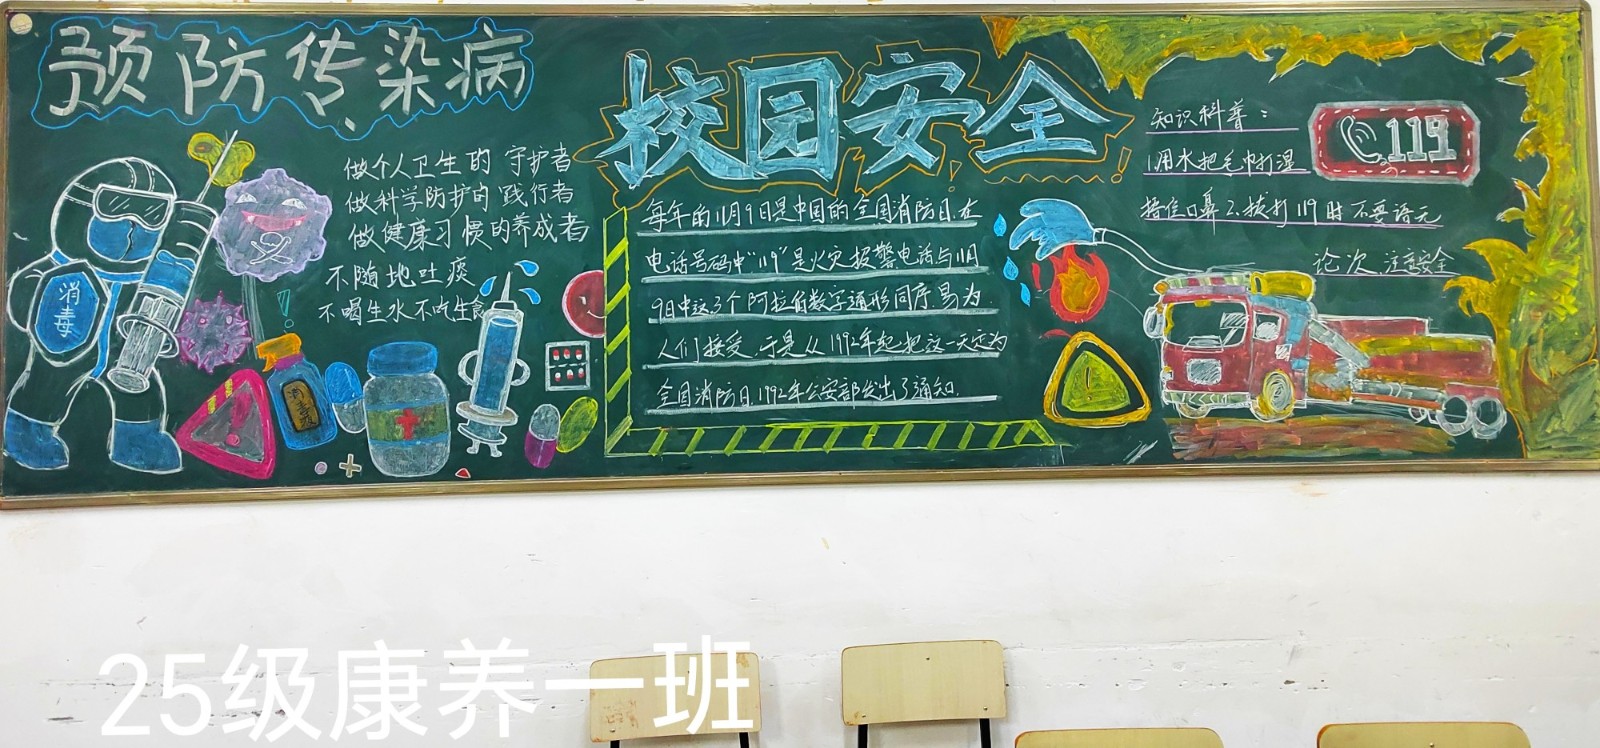 预防传染病
做个人卫生的守护者
做科学防护的践行者
做健康习惯的养成者
不随地吐痰
不喝生水不吃生食
消毒
消毒液
校园安全
每年的11月9日是中国的全国消防日,在
电话号码中"119"是火灾报警电话与11月
9日中这3个阿拉伯数字通形同序,易为
人们接受.于是从1992年起把这一天定为
全国消防日.1992年公安部发出了通知.
知识科普:
1.用水把毛巾打湿
捂住口鼻2.拔打119时不要语无
论次.注意安全
119
25级康养一班